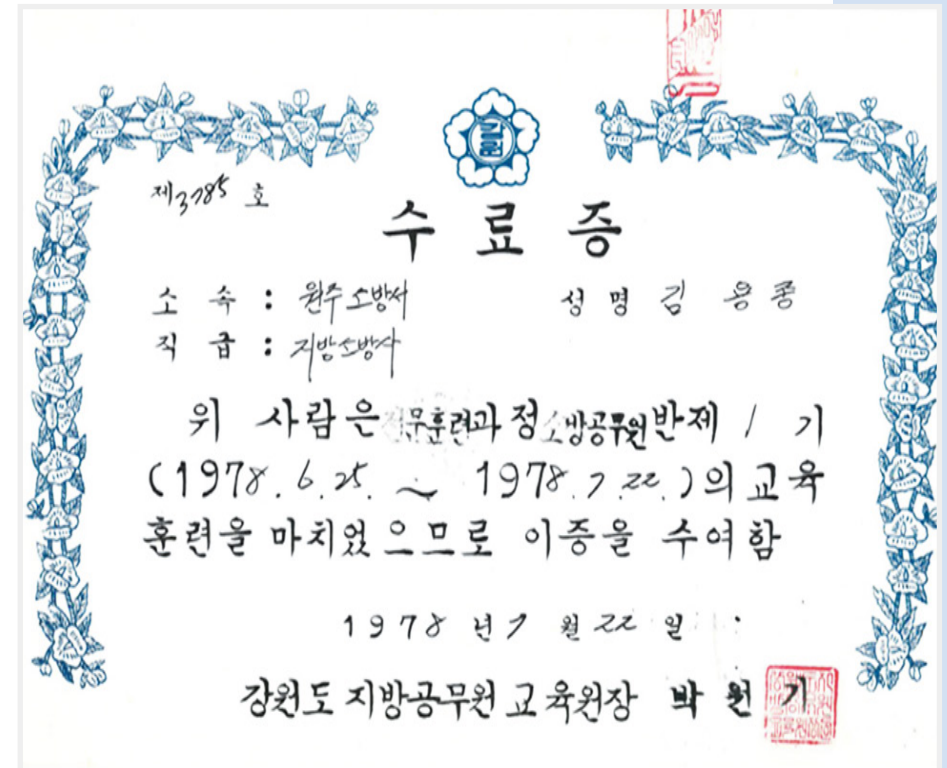 제3785 호
수 료 증
소 속 : 원주소방서 성 명 김 용 종
직 급 : 지방소방사
위 사람은 직무훈련과정소방공무원반제 1 기
(1978. 6. 25. ~ 1978. 7. 22.)의 교육
훈련을 마치었으므로 이증을 수여함
1978 년 7 월 22 일
강원도 지방공무원 교육원장 박 원 기